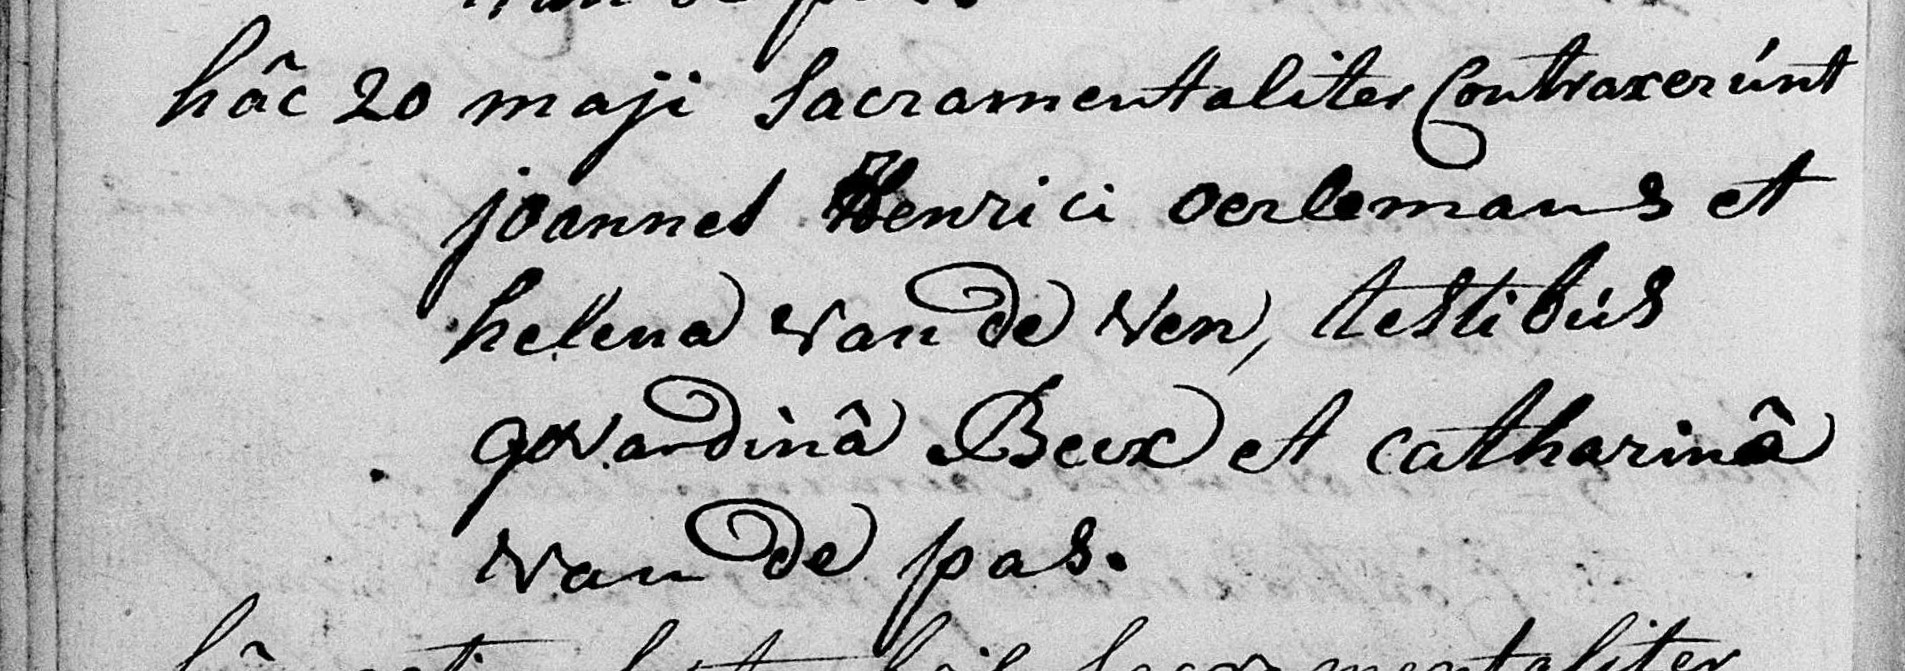 van de pas.
hâc 20 maji Sacramentaliter Contraxerúnt
joannes Henrici oerlemans et
helena van de Ven, testibús
govardinâ Beex et catharinâ
van de pas.
Sacramentaliter